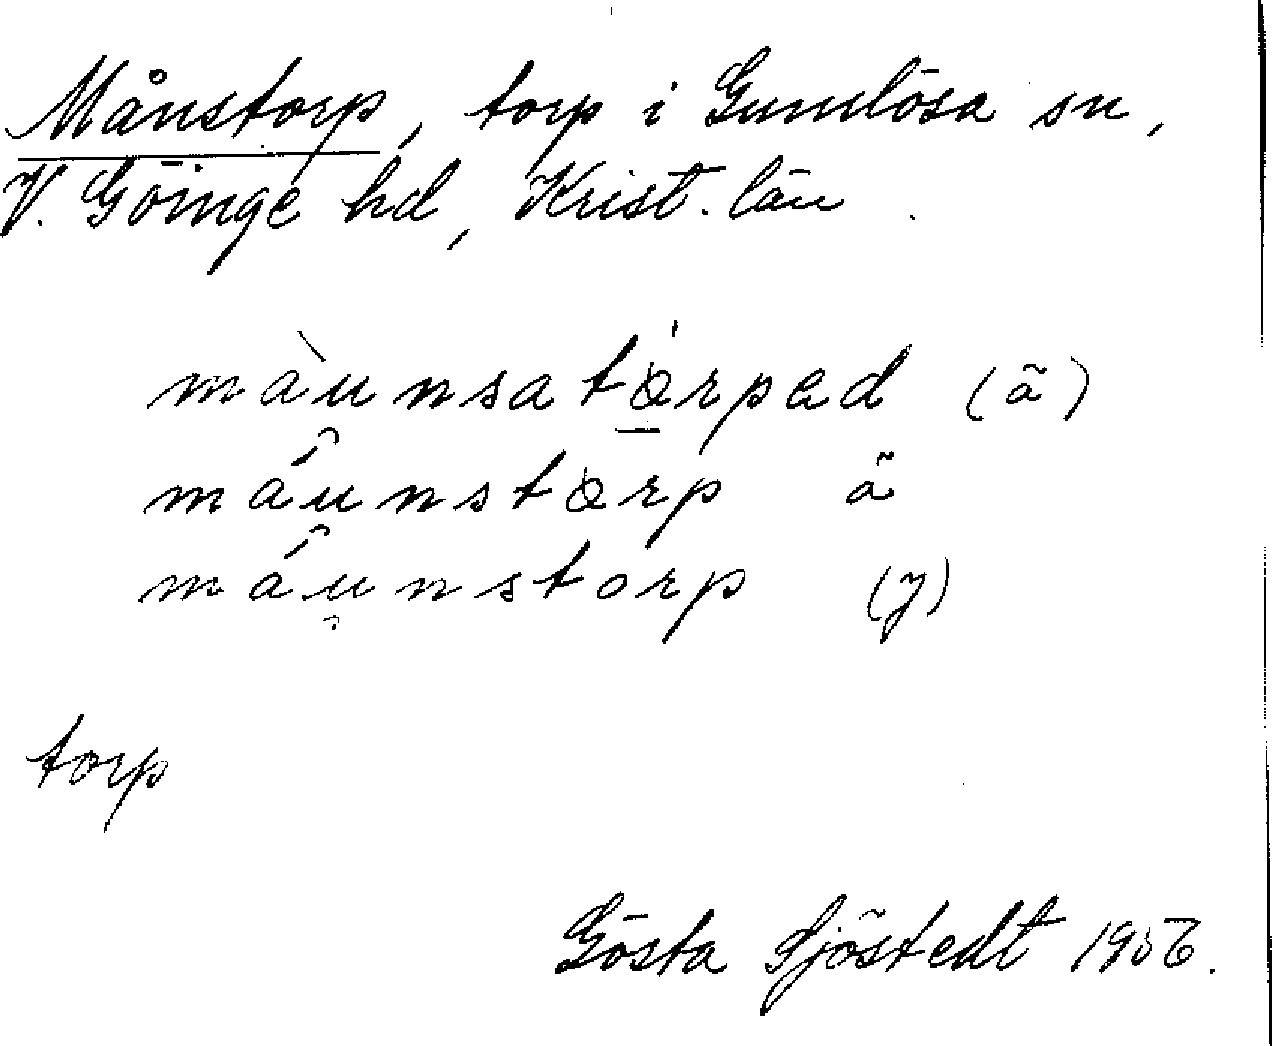 Månstorp, torp i Gumlösa sn,
V. Göinge hd, Krist. län.
màunsatòrped (ä)
mâunstorp ä
mâunstorp (y)
torp
Gösta Sjöstedt 1956.